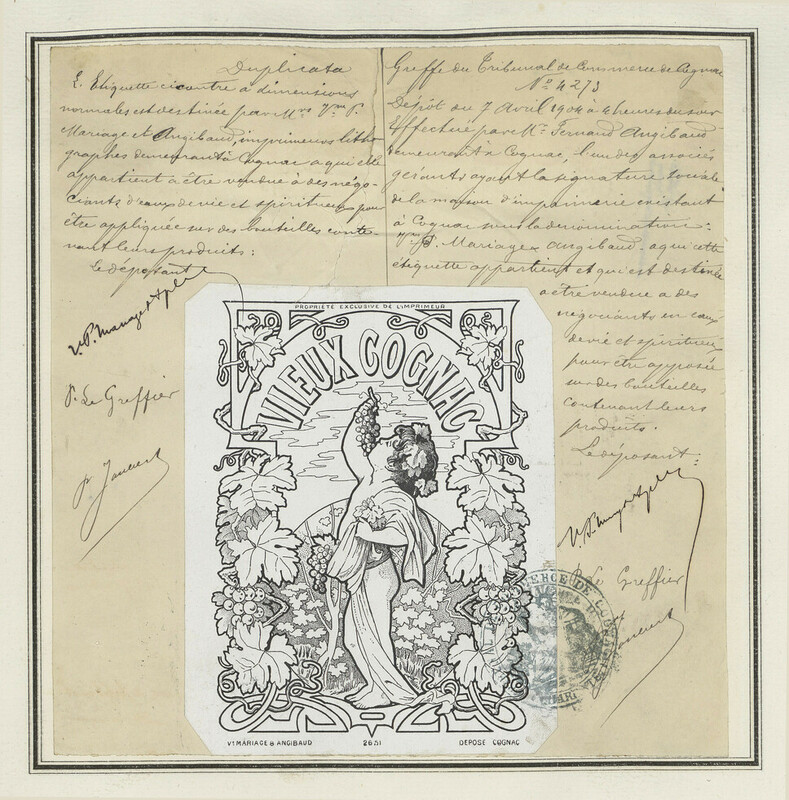 Duplicata
L'Etiquette ci contre à dimensions
normales est destinée par Mrs Vve P.
Mariage et Angibaud, imprimeurs litho
graphes demeurant à Cognac a qui elle
appartient a être vendue à des négo-
ciants d'eaux de vie et spiritueux pour
être appliquée sur des bouteilles conte-
nant leurs produits:
Le déposant
P. Le Greffier
Greffe du Tribunal de Commerce de Cognac
No 4273
Dépôt du 7 Avril 1904 à 4 heures du soir
Effectué par Mr Fernand Angibaud
demeurant à Cognac, l'un des associés
gérants ayant la signature sociale
de la maison d'imprimerie existant
à Cognac sous la dénomination:
Vve P. Mariage & Angibaud, a qui cette
étiquette appartient et qui est destinée
a être vendue a des
négociants en eaux
de vie et spiritueux
pour être apposée
sur des bouteilles
contenant leurs
produits.
Le déposant:
P. Le Greffier
PROPRIÉTÉ EXCLUSIVE DE L'IMPRIMEUR
VIEUX COGNAC
Vve MARIAGE & ANGIBAUD
DEPOSE COGNAC
DE COGNAC